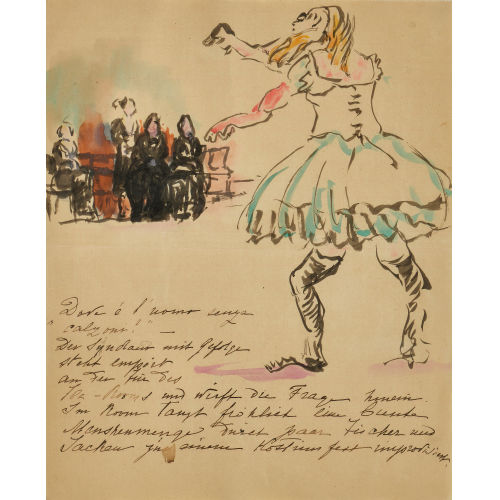 Dove é l'uomo senza
"calzoni?" —
Der Syndaco mit Gefolge
steht empört
an der Tür des
Tea-Rooms und wirft die Frage hinein.
Im Room tanzt fröhlich eine bunte
Menschenmenge. Durch paar Fischer und
Jacken zu einem Kostümfest improvisiert.